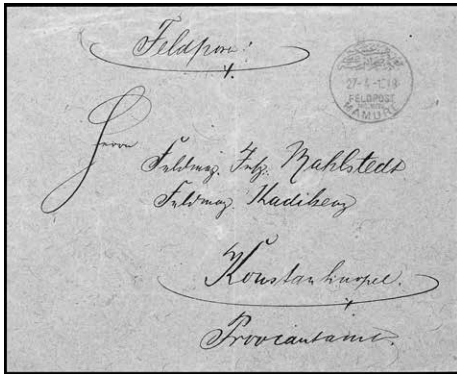 Feldpost!
FELDPOST
MAMURE
Herrn
Feldmag. Insp. Mahlstedt
Feldmag. Kadikeuy
Konstantinopel.
Proviantamt.